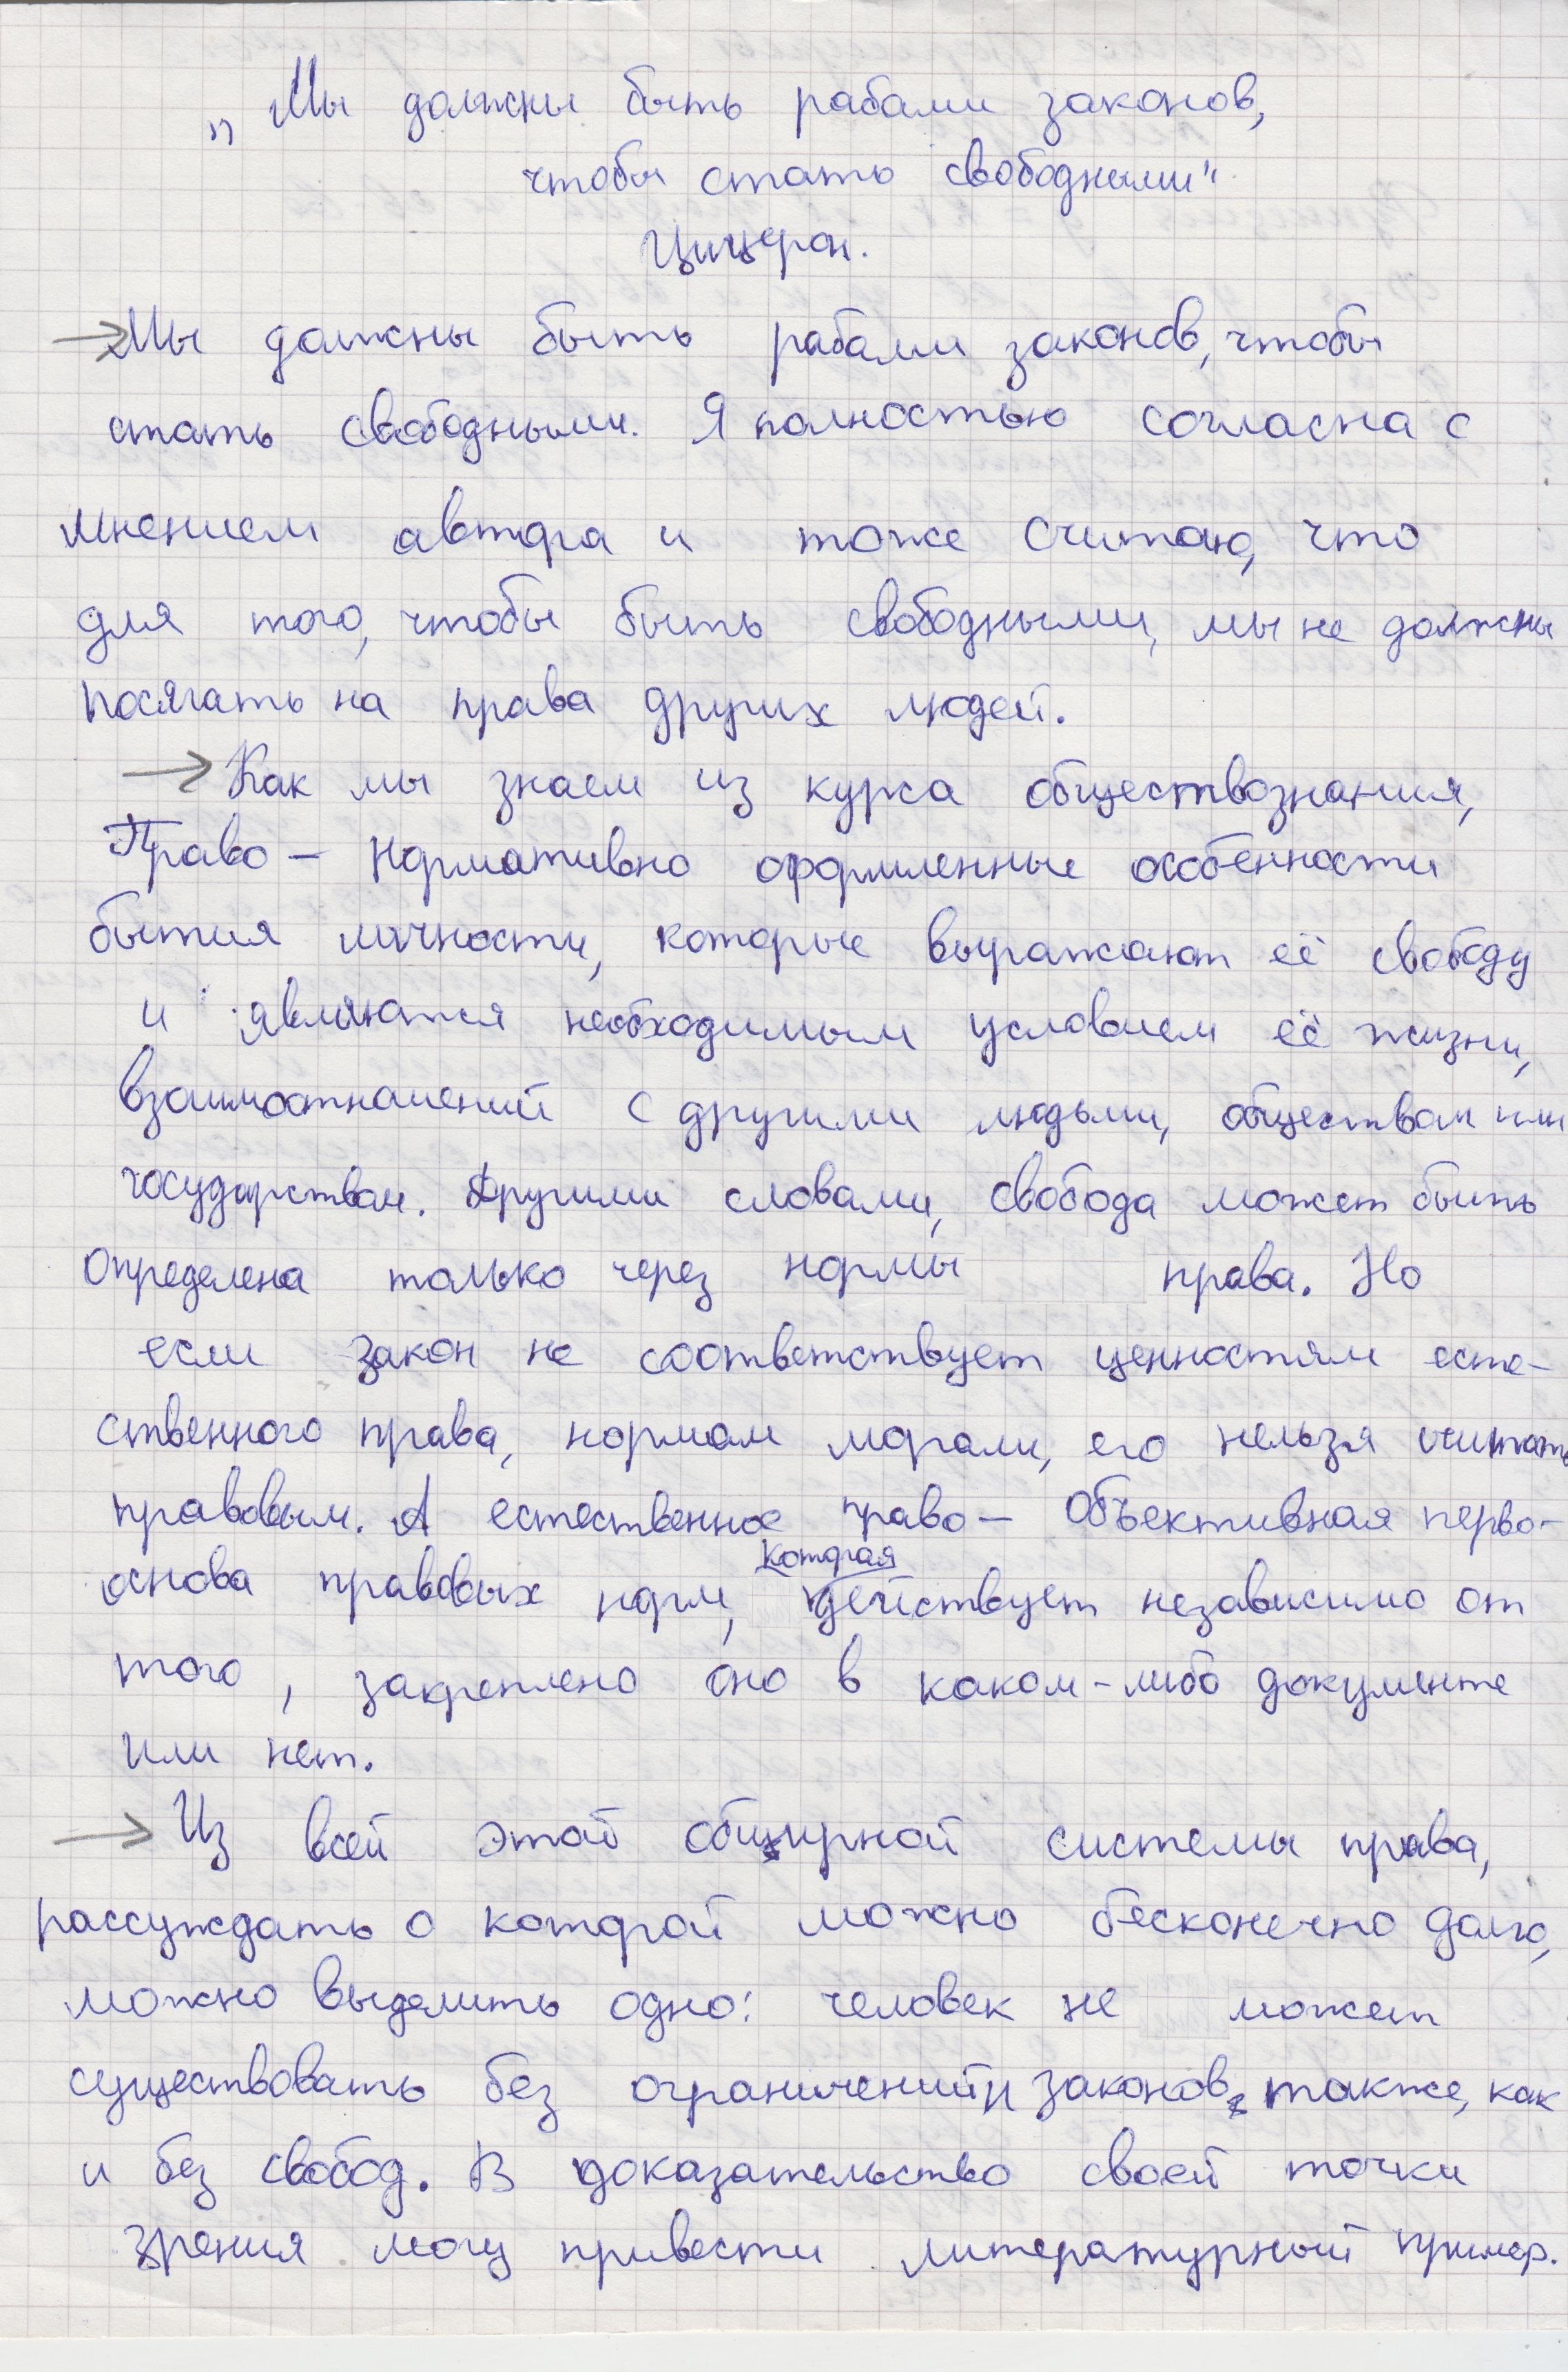 „Мы должны быть рабами законов,
чтобы стать свободными"
Цицерон.
→Мы должны быть рабами законов, чтобы
стать свободными. Я полностью согласна с
мнением автора и тоже считаю, что
для того, чтобы быть свободными, мы не должны
посягать на права других людей.
→Как мы знаем из курса обществознания,
Право – нормативно оформленные особенности
бытия личности, которые выражают её свободу
и являются необходимым условием её жизни,
взаимоотношений с другими людьми, обществом или
государством. Другими словами, свобода может быть
определена только через нормы права. Но
если закон не соответствует ценностям есте-
ственного права, нормам морали, его нельзя считать
правовым. А естественное право – объективная перво-
основа правовых норм, которая действует независимо от
того, закреплено оно в каком-либо документе
или нет.
→Из всей этой обширной системы права,
рассуждать о которой можно бесконечно долго,
можно выделить одно: человек не может
существовать без ограничений и законов также, как
и без свобод. В доказательство своей точки
зрения могу привести литературный пример.